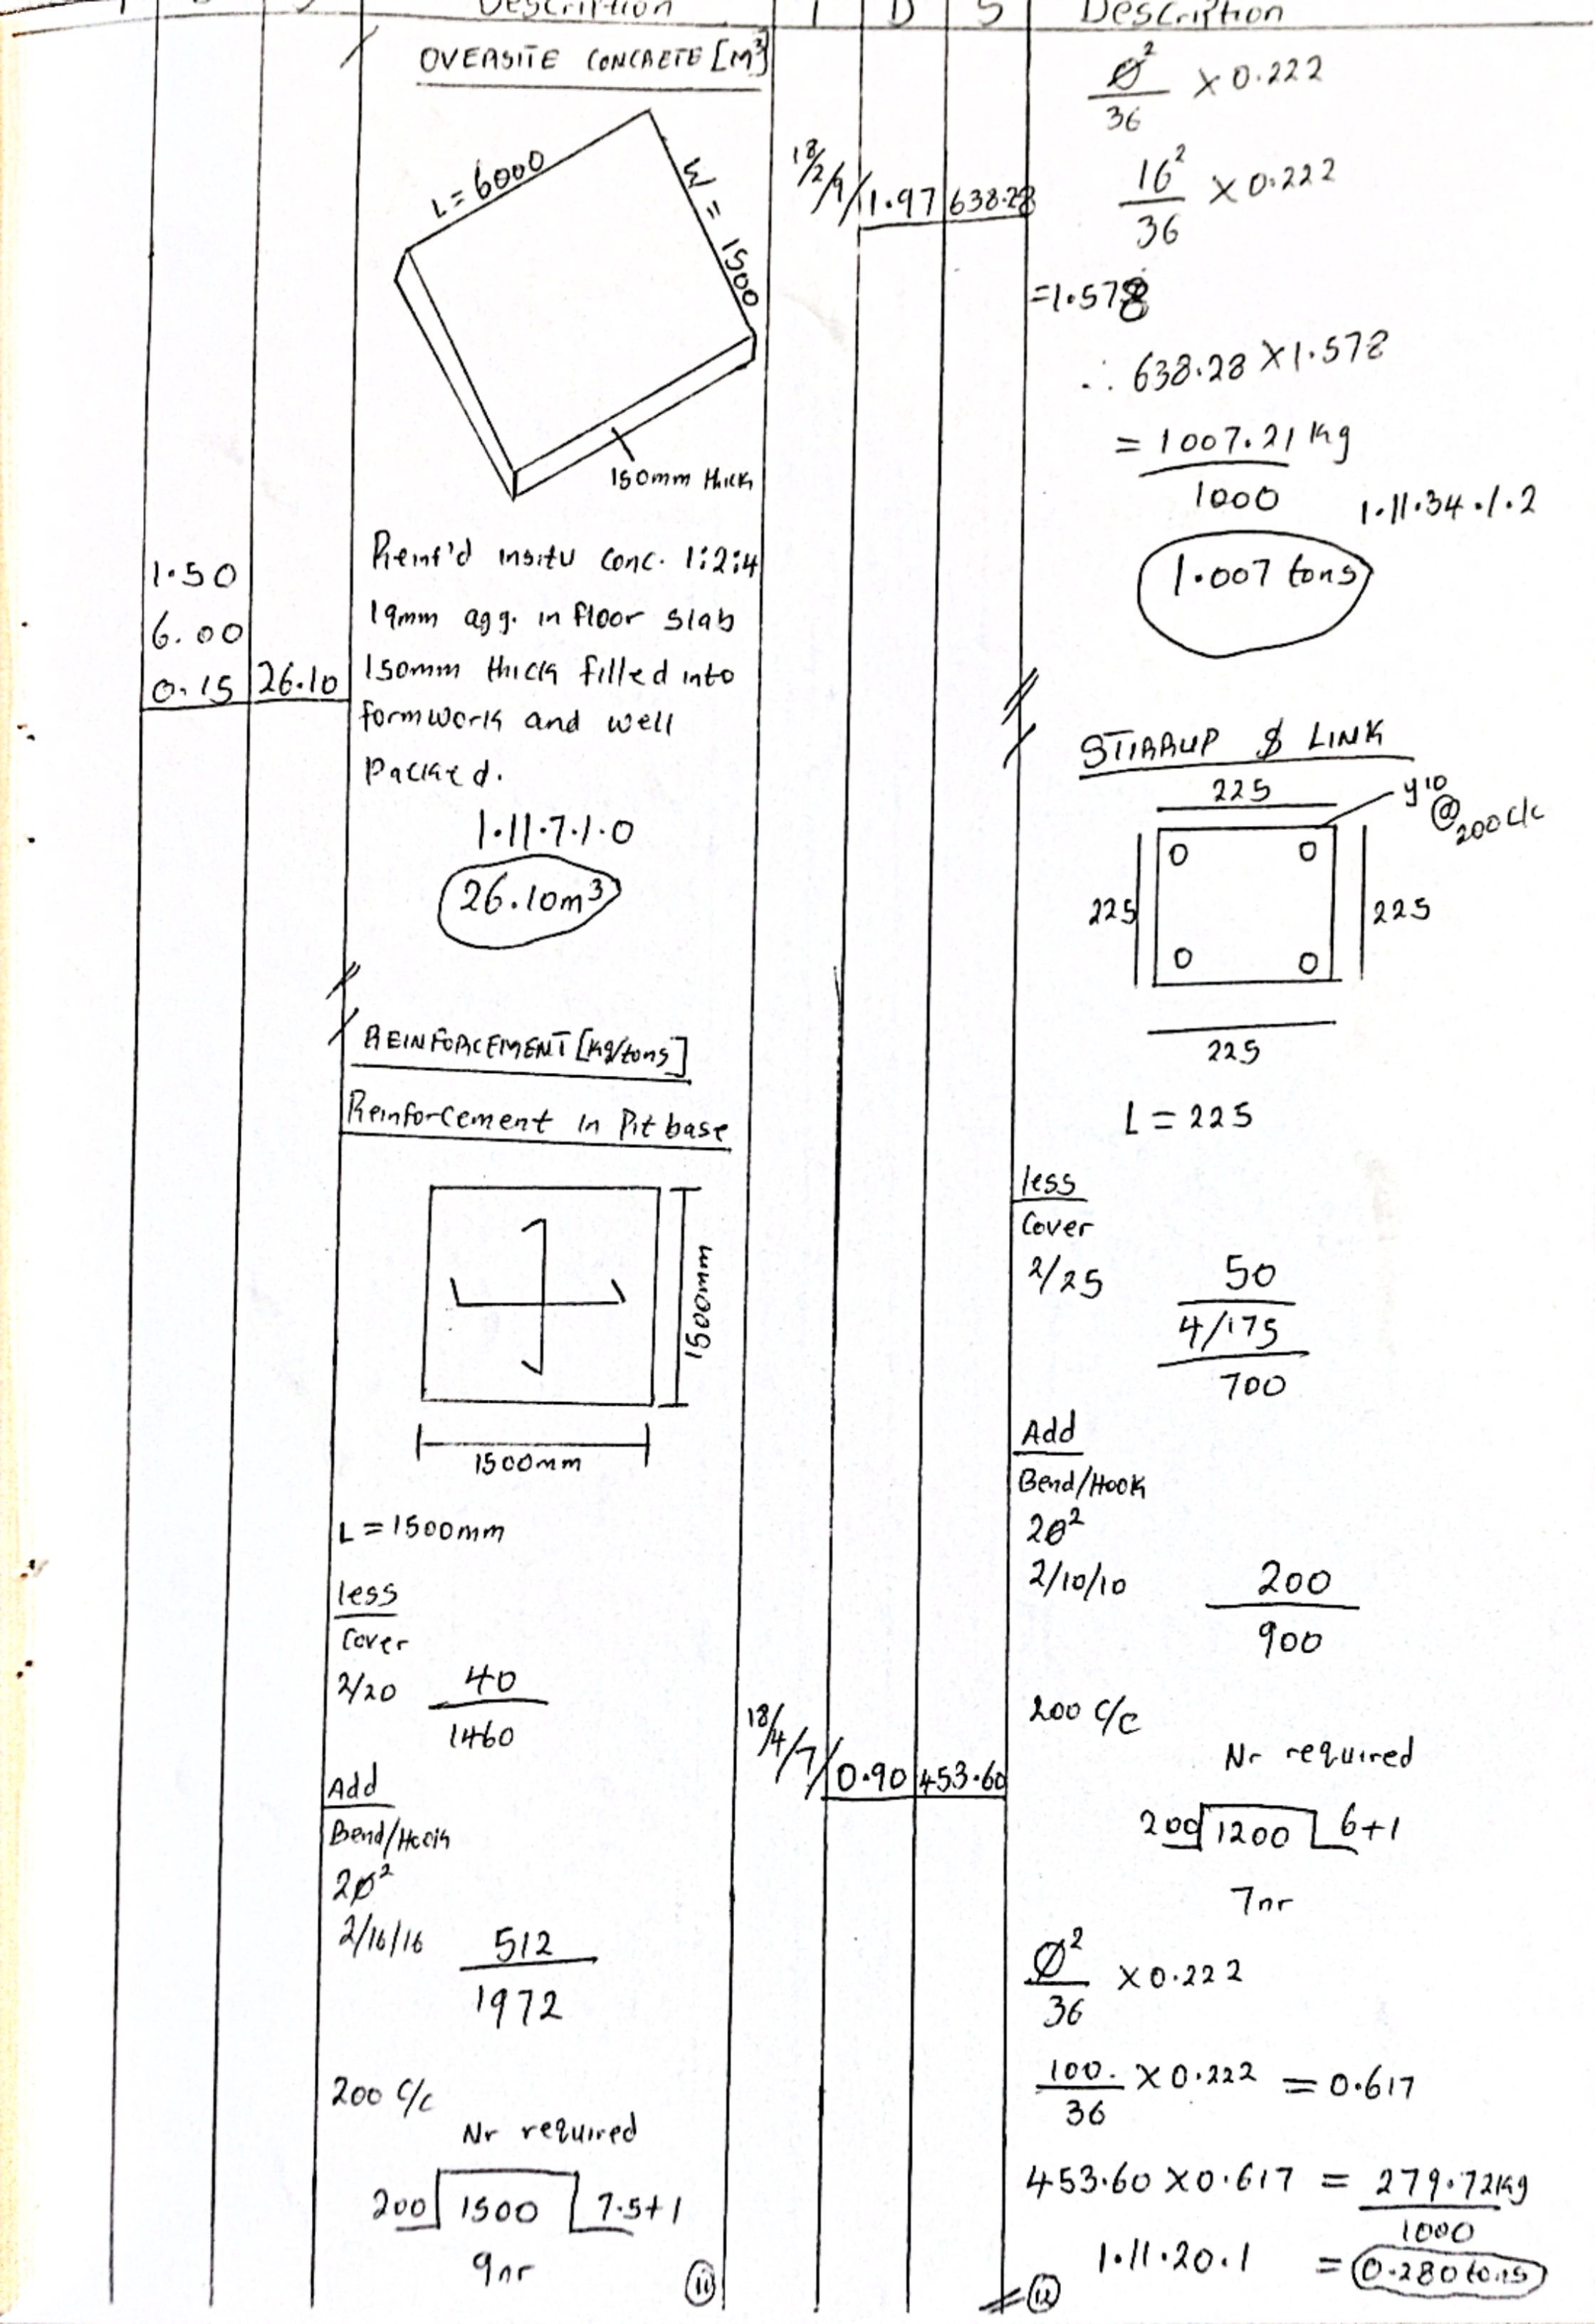 Description
OVERSITE CONCRETE [M³]
L = 6000
W = 1500
150mm thick
1.50
6.00
0.15 26.10
Reinf'd insitu conc. 1:2:4
19mm agg. in floor slab
150mm thick filled into
formwork and well
Packed.
1.11.7.1.0
26.10m³
REINFORCEMENT [kg/tons]
Reinforcement in Pit base
1500mm
1500mm
L = 1500mm
less
Cover
2/20 40
1460
Add
Bend/Hook
2ø²
2/16/16 512
1972
200 c/c
Nr required
200 1500 7.5+1
9nr
11
T D S Description
ø²/36 × 0.222
18/2/9/ 1.97 638.28
16²/36 × 0.222
=1.578
∴ 638.28 × 1.578
= 1007.21 kg
1000 1.11.34.1.2
1.007 tons
STIRRUP & LINK
225
y10
@
200 c/c
225
225
225
L = 225
less
Cover
2/25 50
4/175
700
Add
Bend/Hook
2ø²
2/10/10 200
900
200 c/c
18/4/7/ 0.90 453.60
Nr required
200 1200 6+1
7nr
ø²/36 × 0.222
100./36 × 0.222 = 0.617
453.60 × 0.617 = 279.72kg
1000
1.11.20.1 = 0.280 tons
12